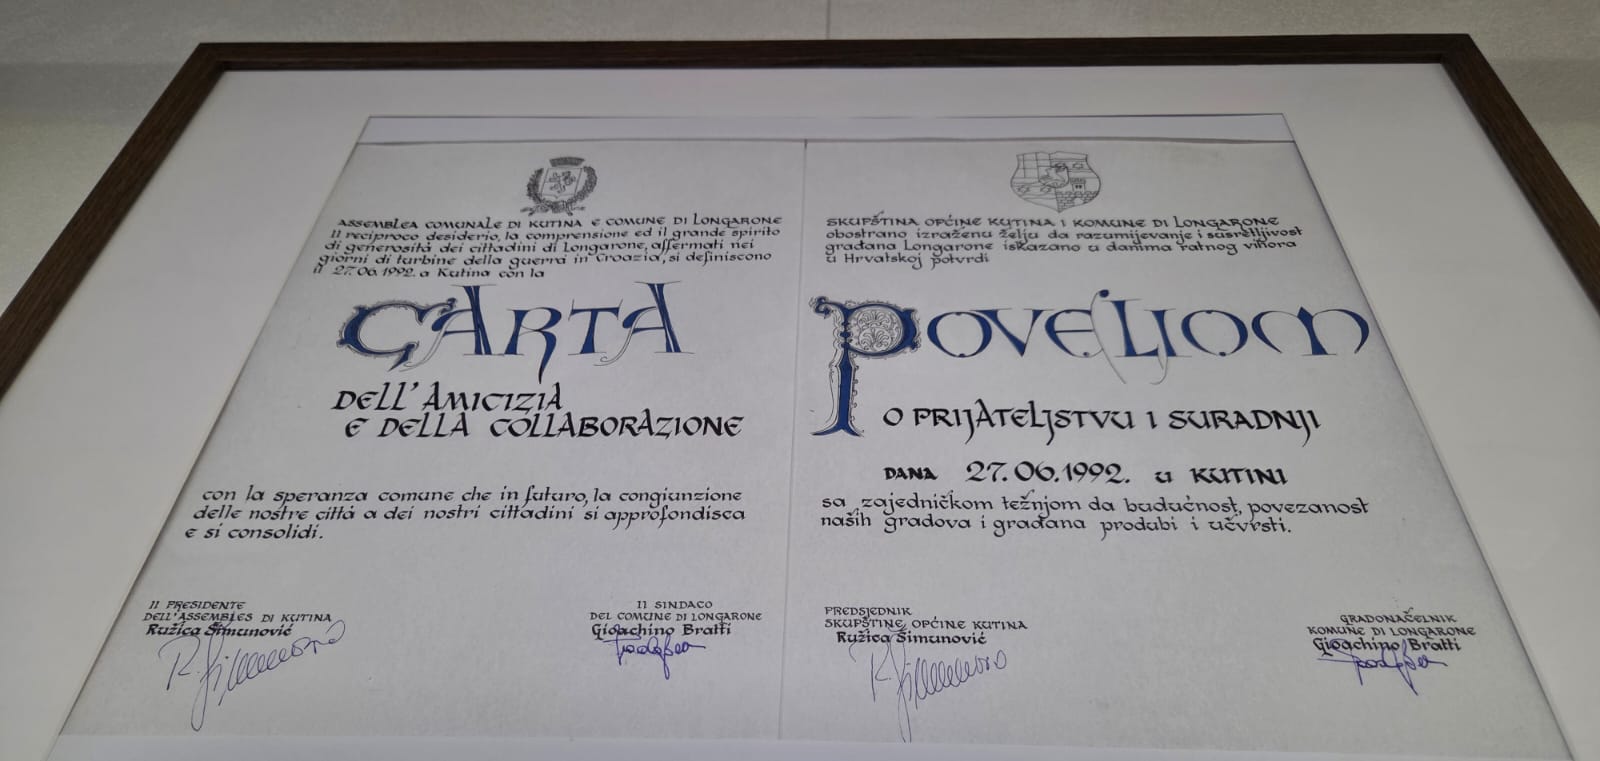 ASSEMBLEA COMUNALE DI KUTINA E COMUNE DI LONGARONE
Il reciproco desiderio, la comprensione ed il grande spirito
di generosità dei cittadini di Longarone, affermati nei
giorni di turbine della guerra in Croazia, si definiscono
il 27.06.1992. a Kutina con la
CARTA
DELL' AMICIZIA
E DELLA COLLABORAZIONE
con la speranza comune che in futuro, la congiunzione
delle nostre città a dei nostri cittadini si approfondisca
e si consolidi.
Il PRESIDENTE
DELL'ASSEMBLES DI KUTINA
Ružica Šimunović
Il SINDACO
DEL COMUNE DI LONGARONE
Gioachino Bratti
SKUPŠTINA OPĆINE KUTINA I KOMUNE DI LONGARONE
obostrano izraženu želju da razumijevanje i susretljivost
građana Longarone iskazano u danima ratnog vihora
u Hrvatskoj potvrdi
POVELJOM
O PRIJATELJSTVU I SURADNJI
DANA 27.06.1992. u KUTINI
sa zajedničkom težnjom da budućnost, povezanost
naših gradova i građana produbi i učvrsti.
PREDSJEDNIK
SKUPŠTINE OPĆINE KUTINA
Ružica Šimunović
GRADONAČELNIK
KOMUNE DI LONGARONE
Gioachino Bratti